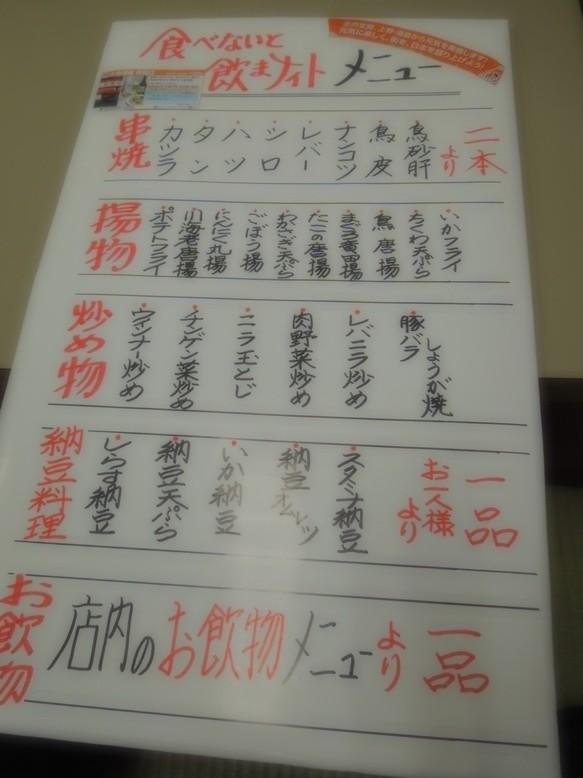 食べないと
飲まナイト メニュー
串焼
二本
より
鳥砂肝
鳥皮
ナンコツ
レバー
シロ
ハツ
タン
カシラ
揚物
いかフライ
ちくわ天ぷら
鳥唐揚
まぐろ竜田揚
たこの唐揚
わかさぎ天ぷら
ごぼう揚
にんにく丸揚
川海老唐揚
ポテトフライ
炒め物
豚バラ
しょうが焼
レバニラ炒め
肉野菜炒め
ニラ玉とじ
チンゲン菜炒め
ウィンナー炒め
納豆料理
一品
お一人様
より
スタミナ納豆
納豆オムレツ
いか納豆
納豆天ぷら
しらす納豆
お飲物
店内のお飲物メニューより 一品